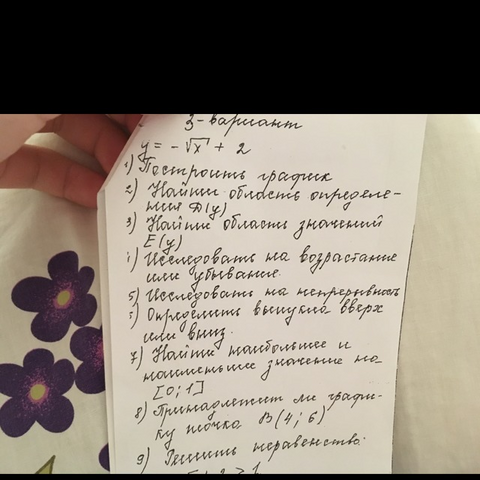 3-вариант
y = -√x + 2
1) Построить график
2) Найти область определе-
ния D(y)
3) Найти область значений
E(y)
4) Исследовать на возрастание
или убывание.
5) Исследовать на непрерывность
6) Определить выпукла вверх
или вниз.
7) Найти наибольшее и
наименьшее значение на
[0; 1]
8) Принадлежит ли графи-
ку точка B(4; 6)
9) Решить неравенство: